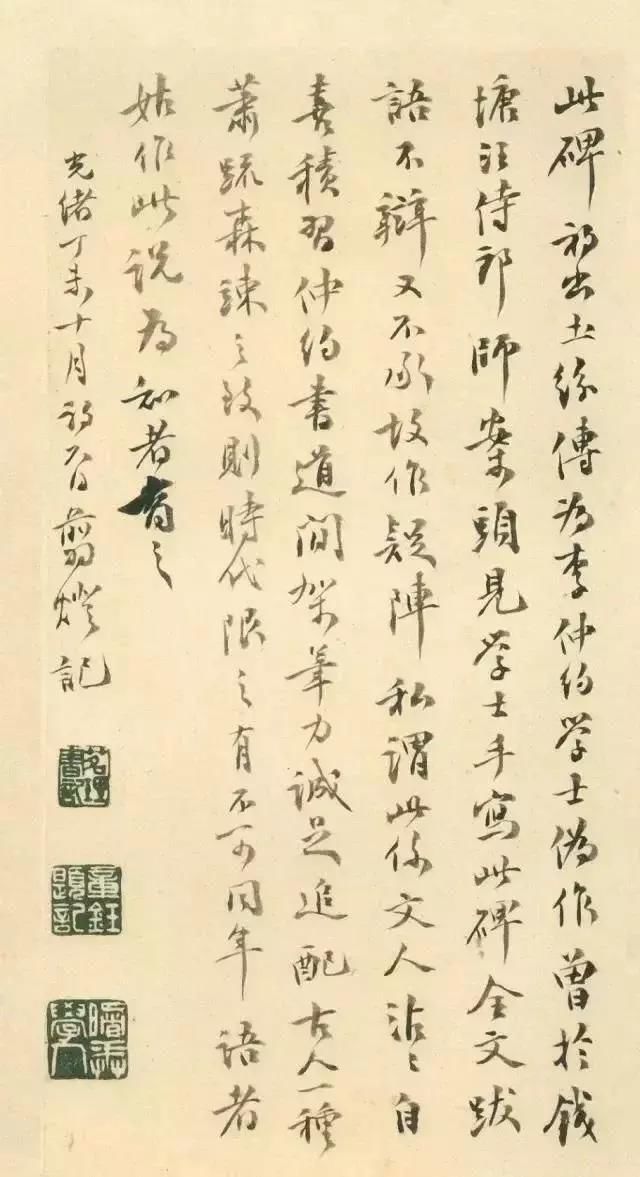 此碑初出土紛傳為李仲約学士偽作曾於錢
塘汪侍郎師案頭見学士手寫此碑全文跋
語不辯又不承故作疑陣私謂此係文人沾〻自
喜積習仲約書道間架筆力誠足追配古人一種
蕭疏森竦之致則時代限之有不可同年語者
姑作此説為知者之
光緒丁未十月初翦燈記
茗理書記
章鈺題記
學人